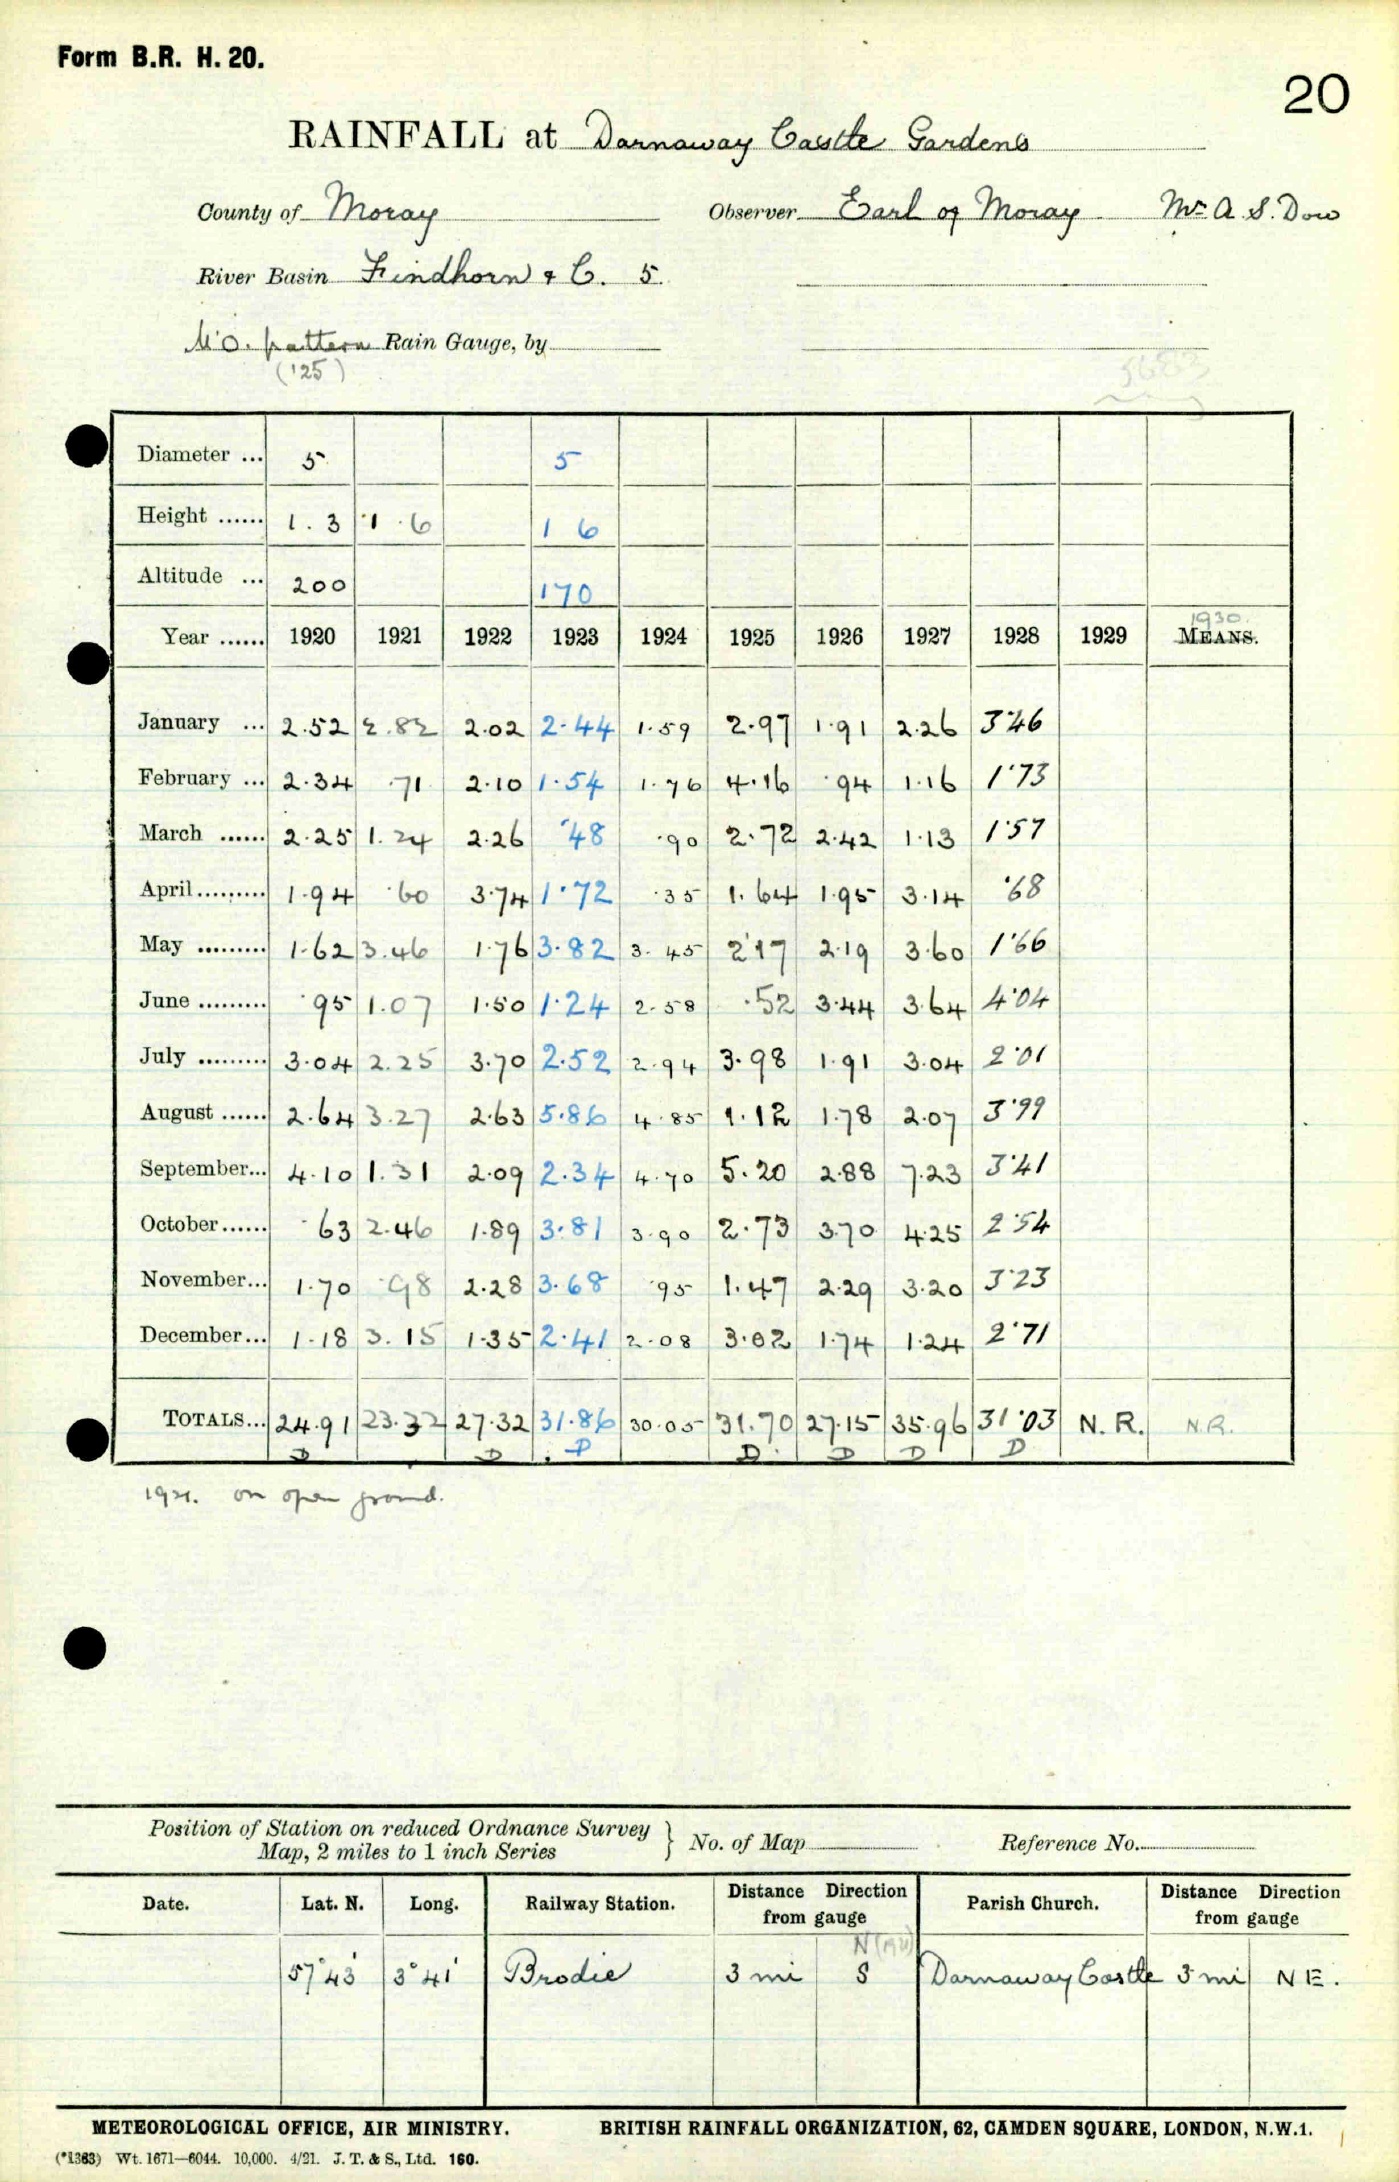 Form B.R. H. 20.
20
RAINFALL at Darnaway Castle Gardens
County of Moray Observer Earl of Moray Mr A. S. Dow
River Basin Findhorn & C. 5
M.O. pattern Rain Gauge, by
(125)
5683
Diameter ... 5 5
Height ...... 1. 3 1 .6 1 6
Altitude ... 200 170
1930.
Year ...... 1920 1921 1922 1923 1924 1925 1926 1927 1928 1929 MEANS.
January ... 2.52 2.82 2.02 2.44 1.59 2.97 1.91 2.26 3.46
February ... 2.34 .71 2.10 1.54 1.76 4.16 .94 1.16 1.73
March ...... 2.25 1.24 2.26 .48 .90 2.72 2.42 1.13 1.57
April......... 1.94 .60 3.74 1.72 .35 1.64 1.95 3.14 .68
May ......... 1.62 3.46 1.76 3.82 3.45 2.17 2.19 3.60 1.66
June ......... .95 1.07 1.50 1.24 2.58 .52 3.44 3.64 4.04
July ......... 3.04 2.25 3.70 2.52 2.94 3.98 1.91 3.04 2.01
August ...... 2.64 3.27 2.63 5.86 4.85 1.12 1.78 2.07 3.99
September... 4.10 1.31 2.09 2.34 4.70 5.20 2.88 7.23 3.41
October...... .63 2.46 1.89 3.81 3.90 2.73 3.70 4.25 2.54
November... 1.70 .98 2.28 3.68 .95 1.47 2.29 3.20 3.23
December... 1.18 3.15 1.35 2.41 2.08 3.02 1.74 1.24 2.71
TOTALS... 24.91 23.32 27.32 31.86 30.05 31.70 27.15 35.96 31.03 N. R. N.R.
D D D D D D D
1921. on open ground.
Position of Station on reduced Ordnance Survey
Map, 2 miles to 1 inch Series } No. of Map Reference No.
Date. Lat. N. Long. Railway Station. Distance Direction from gauge Parish Church. Distance Direction from gauge
N (1921)
57°43' 3°41' Brodie 3 mi S Darnaway Castle 3 mi N E.
METEOROLOGICAL OFFICE, AIR MINISTRY. BRITISH RAINFALL ORGANIZATION, 62, CAMDEN SQUARE, LONDON, N.W.1.
(*1383) Wt. 1671—6044. 10,000. 4/21. J. T. & S., Ltd. 160.